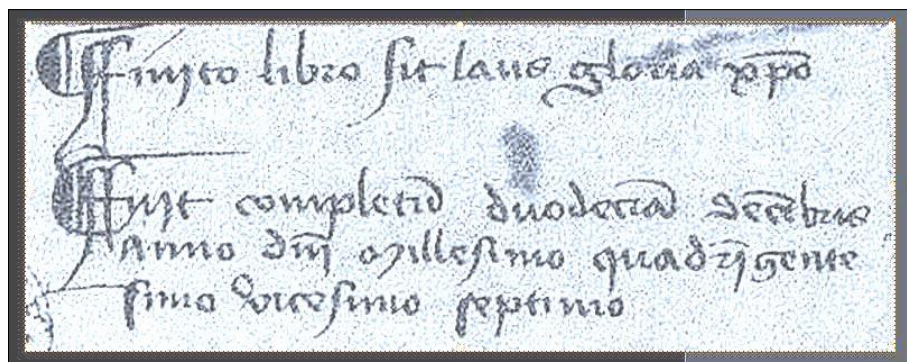 ¶ Finito libro sit laus gloria xp̄o
¶ Fuit completū duodecīa decēbris
Anno dnī Millesimo quadrīgente
simo vicesimo septimo